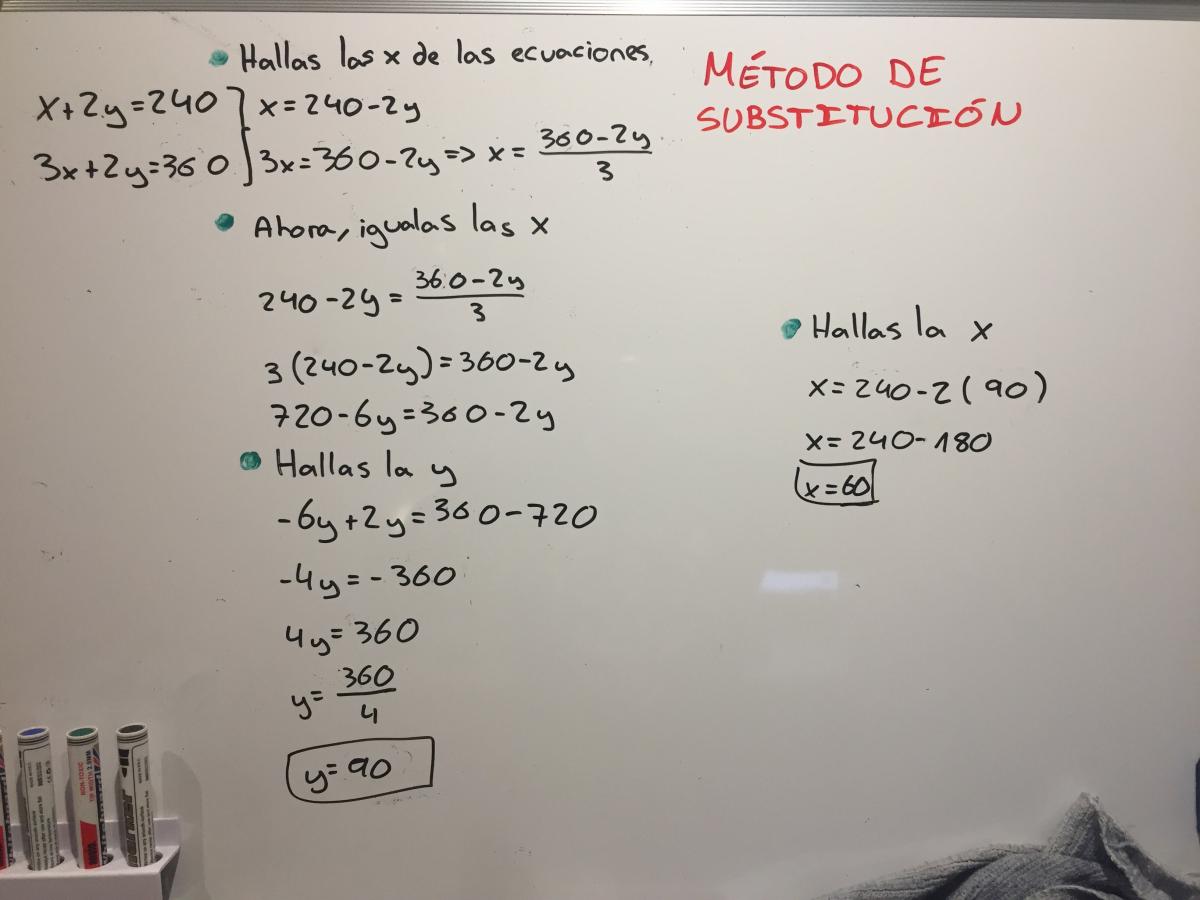 MÉTODO DE
SUBSTITUCIÓN
Hallas las x de las ecuaciones.
x+2y=240 } x=240-2y
3x+2y=360 } 3x=360-2y => x= (360-2y)/3
Ahora, igualas las x
240-2y = (360-2y)/3
3(240-2y)=360-2y
720-6y=360-2y
Hallas la y
-6y+2y=360-720
-4y=-360
4y=360
y= 360/4
y=90
Hallas la x
x=240-2(90)
x=240-180
x=60
NON-TOXIC